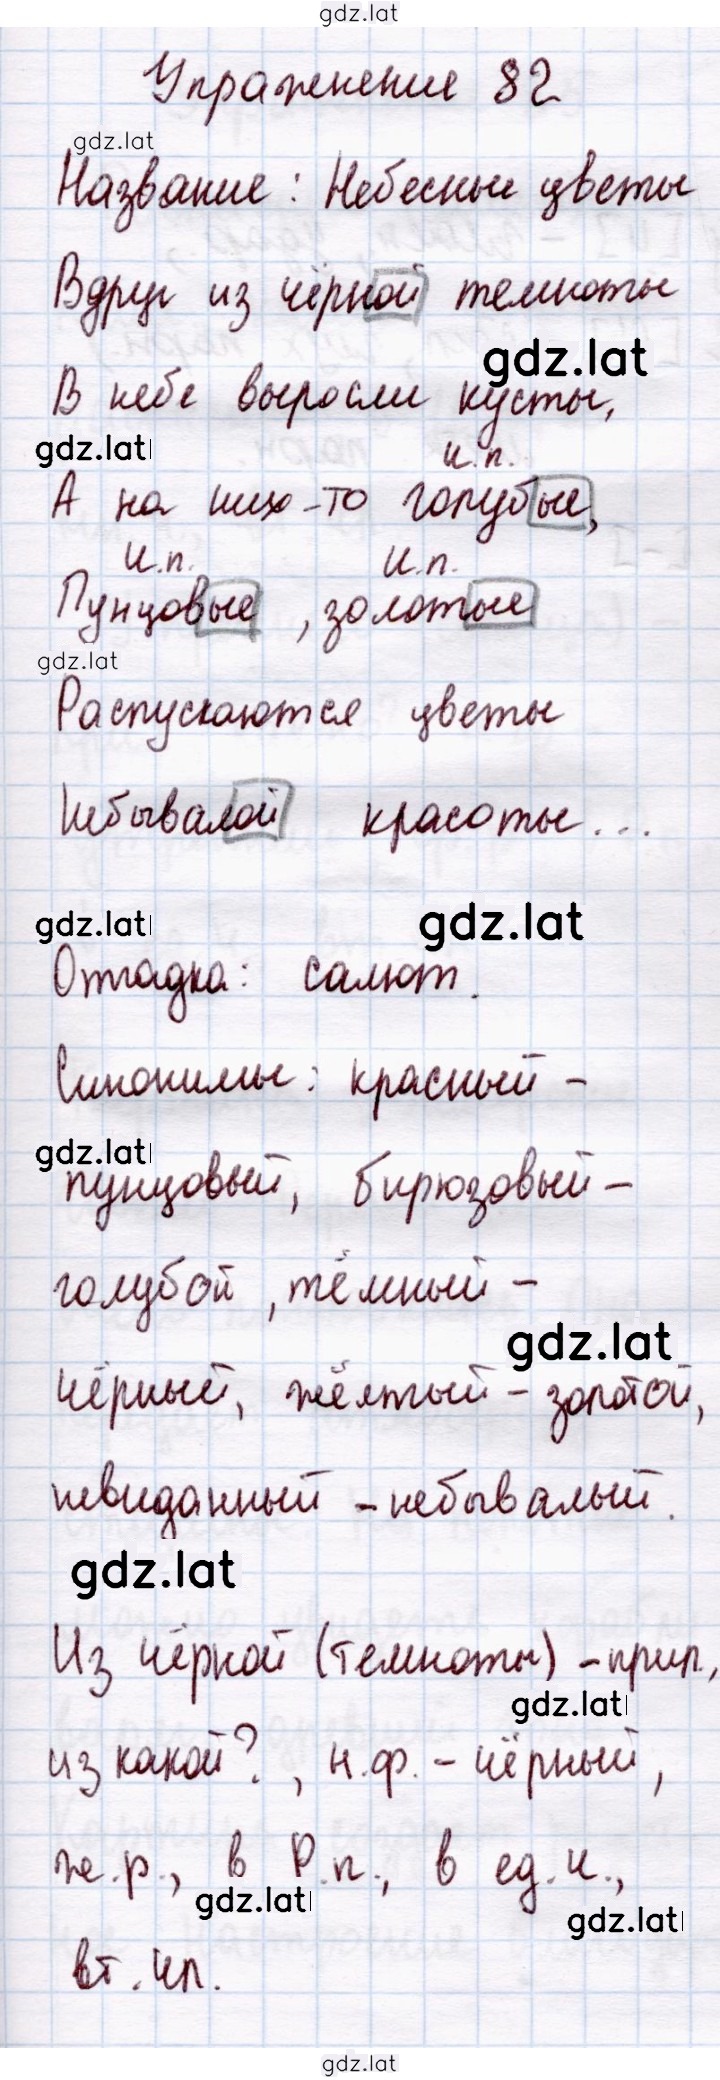 gdz.lat
Упражнение 82
gdz.lat
Название: Небесные цветы
Вдруг из чёрной темноты
gdz.lat
В небе выросли кусты,
gdz.lat
и.п.
А на них-то голубые,
И.п. И.п.
Пунцовые, золотые
gdz.lat
Распускаются цветы
Небывалой красоты...
gdz.lat gdz.lat
Отгадка: салют.
Синонимы: красный –
gdz.lat
пунцовый, бирюзовый –
голубой, тёмный –
gdz.lat
чёрный, жёлтый – золотой,
невиданный – небывалый.
gdz.lat
Из чёрной (темноты) – прил.,
gdz.lat
из какой?, н.ф. – чёрный,
ж.р., в Р.п., в ед.ч.,
gdz.lat gdz.lat
вт.чл.
gdz.lat